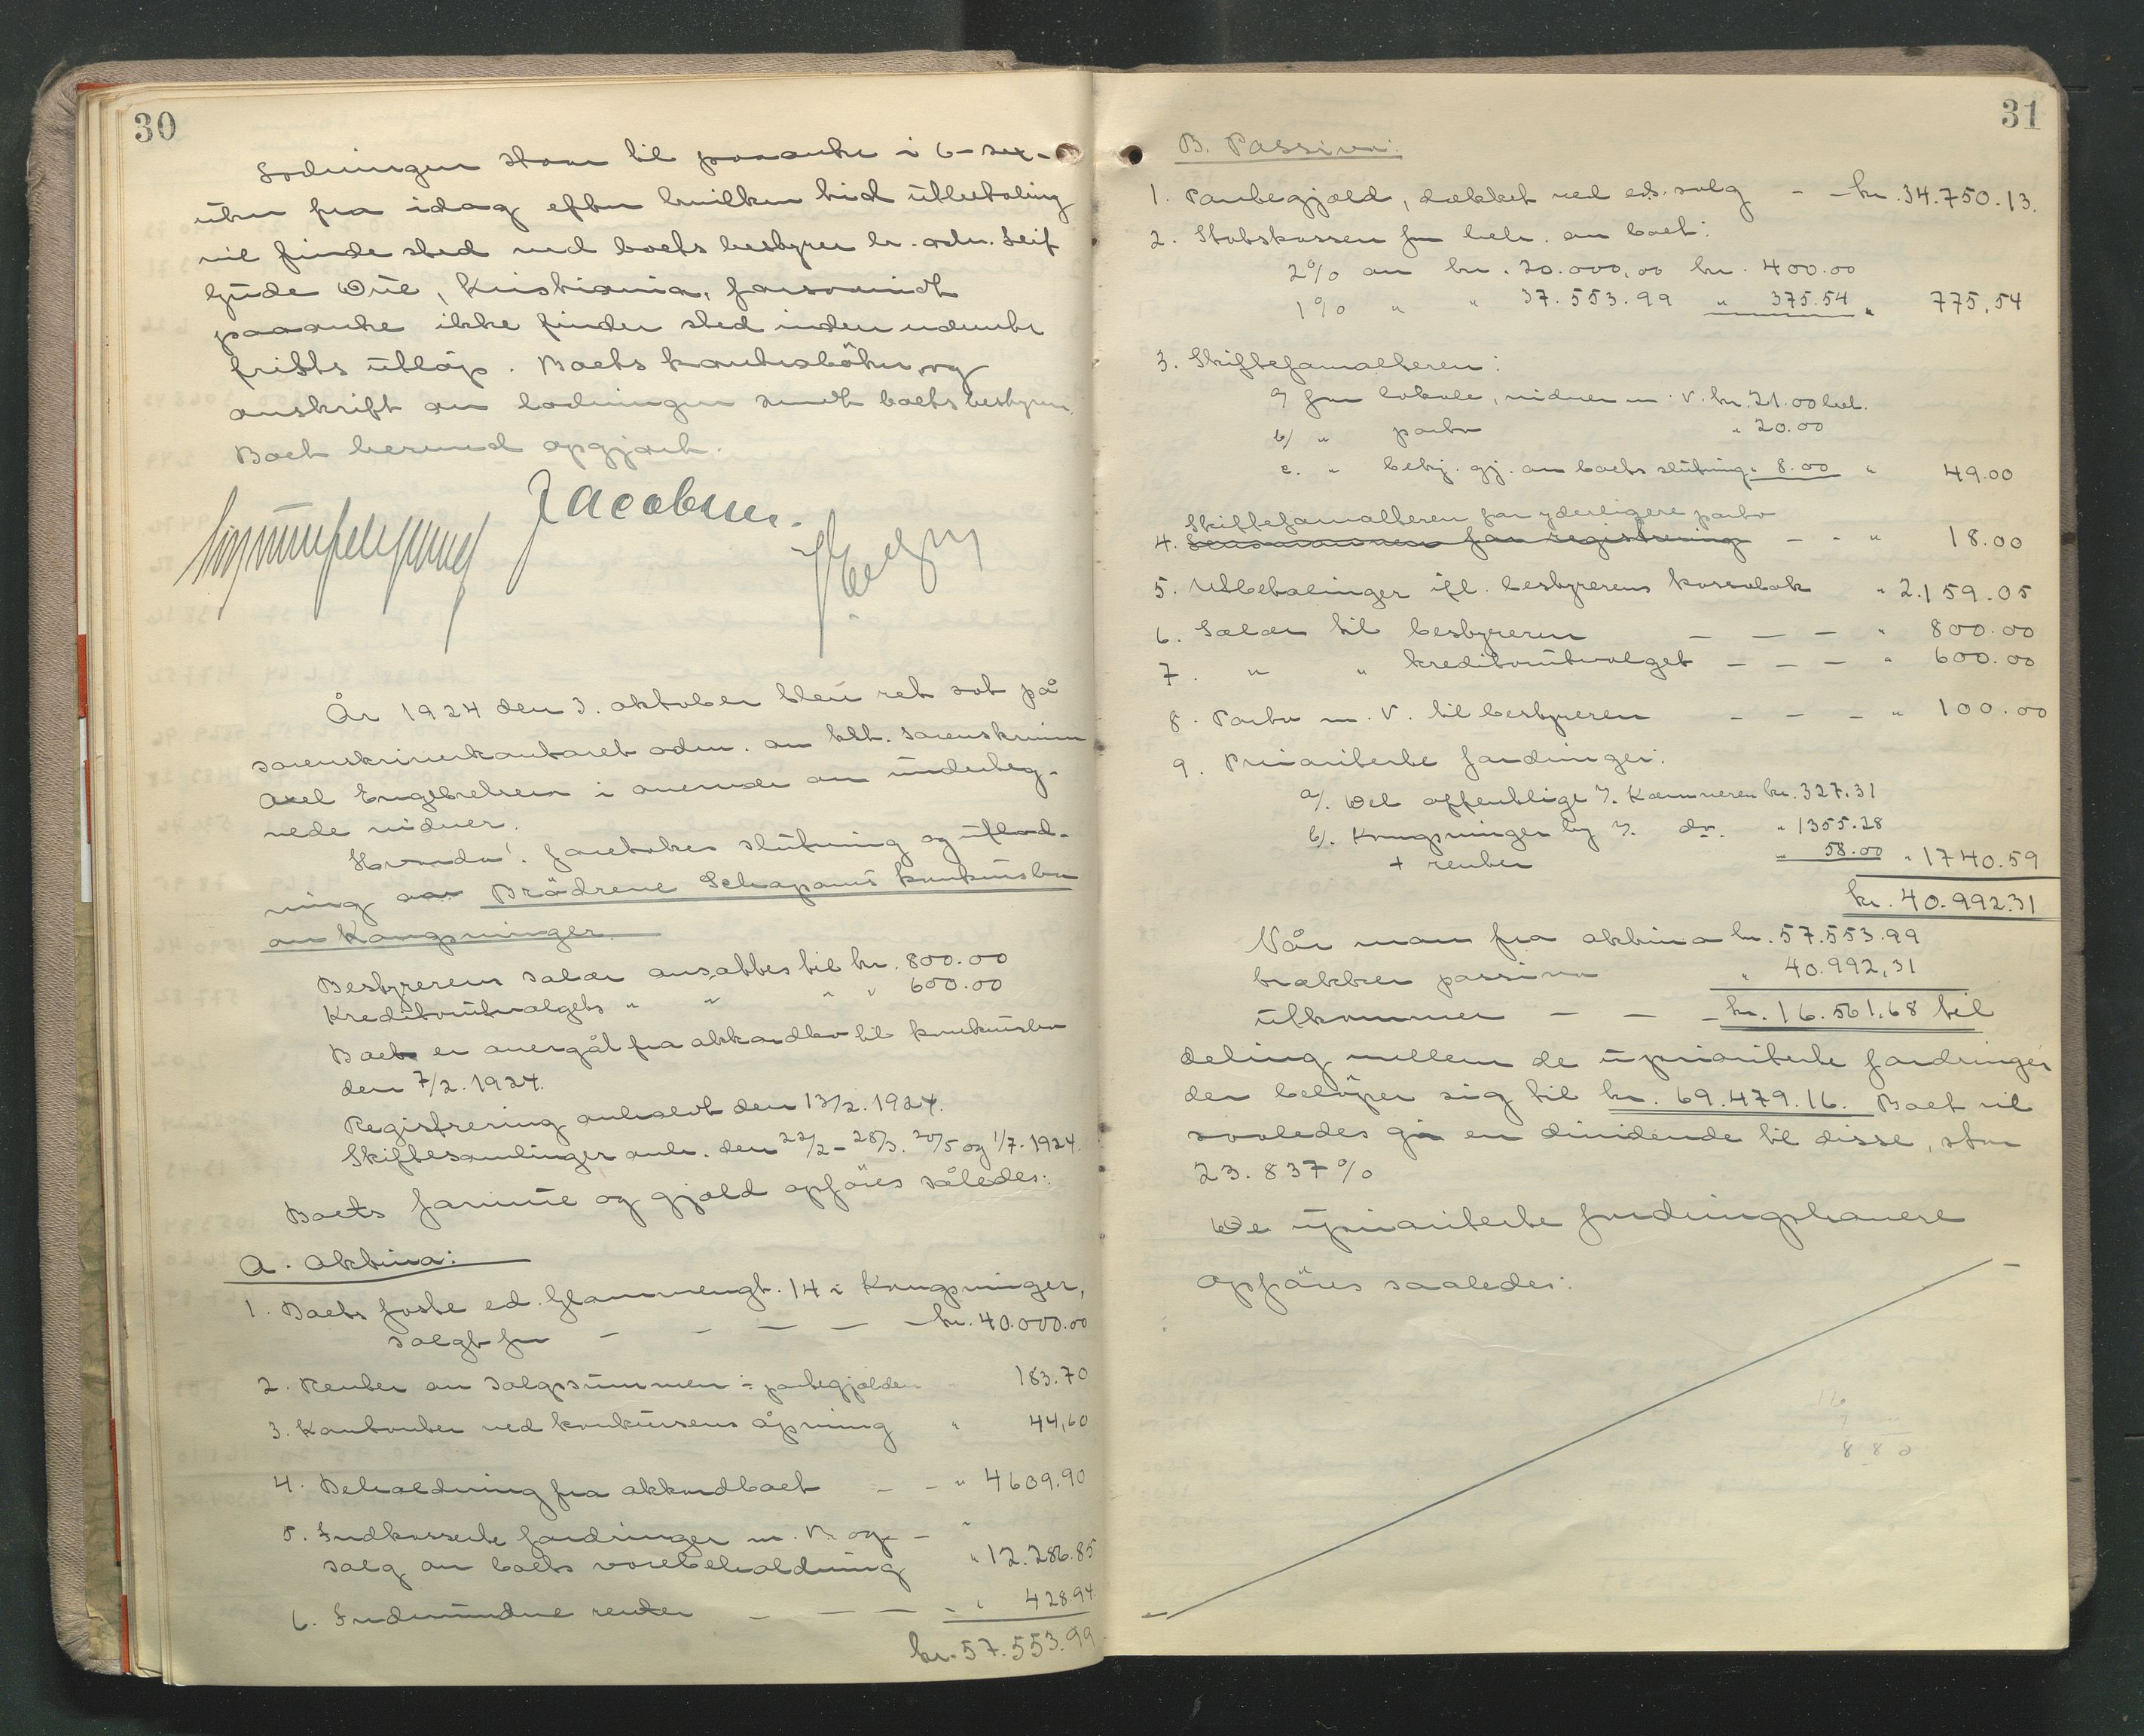 30
Lodningen staar til paaanke i 6-sex-
uker fra idag efter hvilken tid utbetaling
vil finde sted ved boets bestyrer hr. adv. Leif
Gude Due, Kristiania, forsaavidt
paaanke ikke finder sted inden nævnte
frists utløp. Boets kontrabøker og
avskrift av lodningen sendt boets bestyrer.
Boet hermed opgjort.
Jacobsen.
År 1924 den 3. oktober blev ret sat på
sorenskriverkontoret adm. av kst. sorenskriver
Axel Engebretsen i nærvær av underteg-
nede vidner.
Hvorda: foretokes slutning og utlod-
ning av Brødrene Schapows konkursbo
av Kongsvinger
Bestyrerens salær ansattes til kr. 800.00
Kreditorutvalgets " " " " 600.00
Boet er overgåt fra akkordbo til konkursbo
den 7/2. 1924.
Registrering avholdt den 13/2. 1924.
Skiftesamlinger avh. den 22/2 - 28/3. 20/5 og 1/7. 1924.
Boets formue og gjæld opføres således:
A. Aktiva:
1. Boets faste ed. Glommengt. 14 i Kongsvinger,
solgt for - - - - - kr. 40.000.00
2. Renter av salgssummen ÷ pantegjælden " 183.70
3. Kontanter ved konkursens åpning " 44,60
4. Beholdning fra akkordboet - - " 4609.90
5. Indkasserte fordringer m. v. og - "
salg av boets varebeholdning " 12.286.85
6. Indvundne renter - - - - " 428.94
kr. 57.553.99
31
B. Passiva:
1. Pantegjæld, dækket ved ed. salg - - kr. 34.750.13.
2. Statskassen for beh. av boet:
2% av kr. 20.000,00 kr. 400.00
1% " " 37.553.99 " 375.54 " 775,54
3. Skifteforvalteren:
a/ for lokale, vidner m. v. kr. 21.00
b/ " porto " 20.00
c. " bekj. gj. av boets slutning " 8.00 " 49.00
Skifteforvalteren for yderligere porto
4. for registrering - - " 18.00
5. Utbetalinger ifl. bestyrerens kassabok " 2.159.05
6. Salær til bestyreren - - - " 800.00
7. " " kreditorutvalget - - - " 600.00
8. Porto m. v. til bestyreren - - - " 100.00
9. Prioriterte fordringer:
a/. Det offentlige v. Kæmneren kr. 327.31
b/. Kongsvinger by v. do. " 1355.28
+ renter " 58.00 " 1740.59
kr. 40.992.31
Når man fra aktiva kr. 57.553.99
trækker passiva " 40.992,31
utkommer - - - kr. 16.561.68 til
deling mellem de upriorterte fordringer
der beløper sig til kr. 69.479.16. Boet vil
saaledes gi en dividende til disse, stor
23.837%
De uprioriterte fordringshavere
opføres saaledes:
116
880